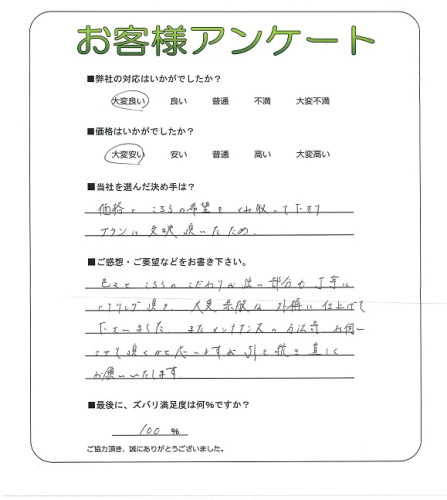 お客様アンケート
■弊社の対応はいかがでしたか？
大変良い 良い 普通 不満 大変不満
■価格はいかがでしたか？
大変安い 安い 普通 高い 大変高い
■当社を選んだ決め手は？
価格とこちらの希望をくみ取って下さり
プランに反映頂いたため。
■ご感想・ご要望などをお書き下さい。
色々とこちらのこだわりが強い部分も丁寧に
ヒアリング頂き、大変素敵な外構に仕上げて
下さいました。またメンテナンスの方法等、お伺い
させて頂くかと思いますが引き続き宜しく
お願いいたします
■最後に、ズバリ満足度は何%ですか？
100 %
ご協力頂き、誠にありがとうございました。